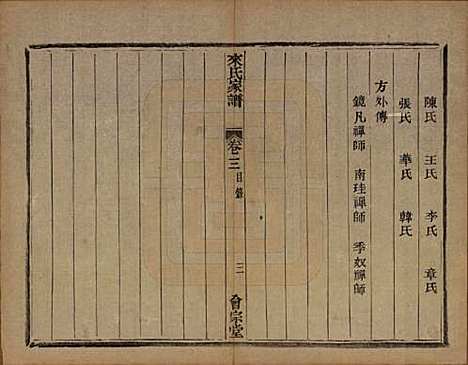 陳氏 王氏 李氏 章氏
張氏 華氏 韓氏
方外傳
鏡凡禪師 南珪禪師 季奴禪師
來氏家譜 卷三 目錄 三 會宗堂